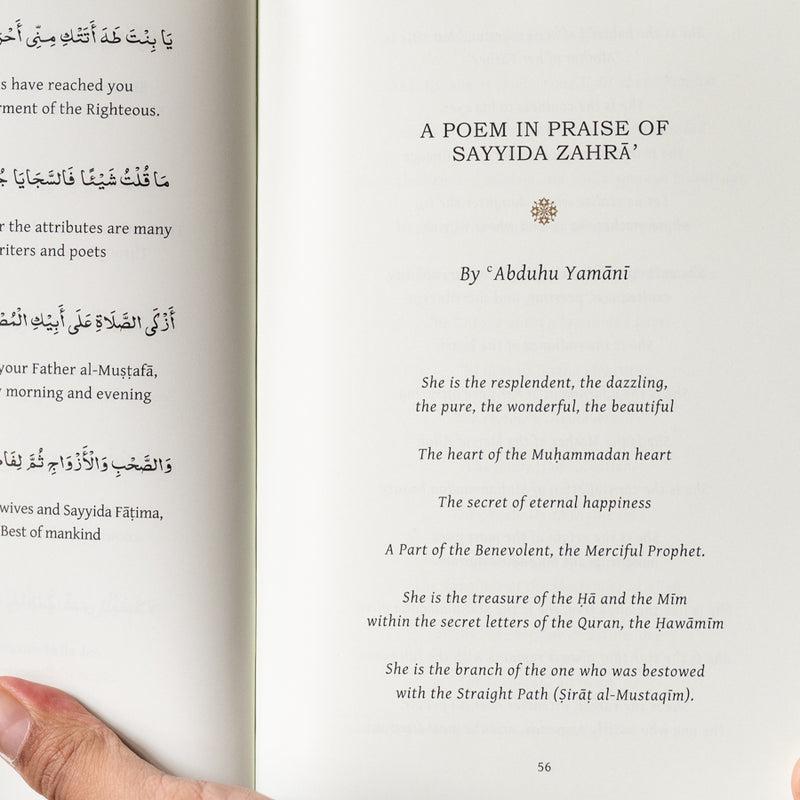 يَا بِنْتَ طَهَ أَتَتْكِ مِنِّي
s have reached you
rment of the Righteous.
مَا قُلْتُ شَيْئًا فَالسَّجَايَا
r the attributes are many
riters and poets
أَزْكَى الصَّلَاةِ عَلَى أَبِيْكِ
your Father al-Muṣṭafā,
morning and evening
وَالصَّحْبِ وَالْأَزْوَاجِ ثُمَّ
wives and Sayyida Fāṭima,
Best of mankind
A POEM IN PRAISE OF
SAYYIDA ZAHRĀ’
By ᶜAbduhu Yamānī
She is the resplendent, the dazzling,
the pure, the wonderful, the beautiful
The heart of the Muḥammadan heart
The secret of eternal happiness
A Part of the Benevolent, the Merciful Prophet.
She is the treasure of the Ḥā and the Mīm
within the secret letters of the Quran, the Ḥawāmīm
She is the branch of the one who was bestowed
with the Straight Path (Ṣirāṭ al-Mustaqīm).
56